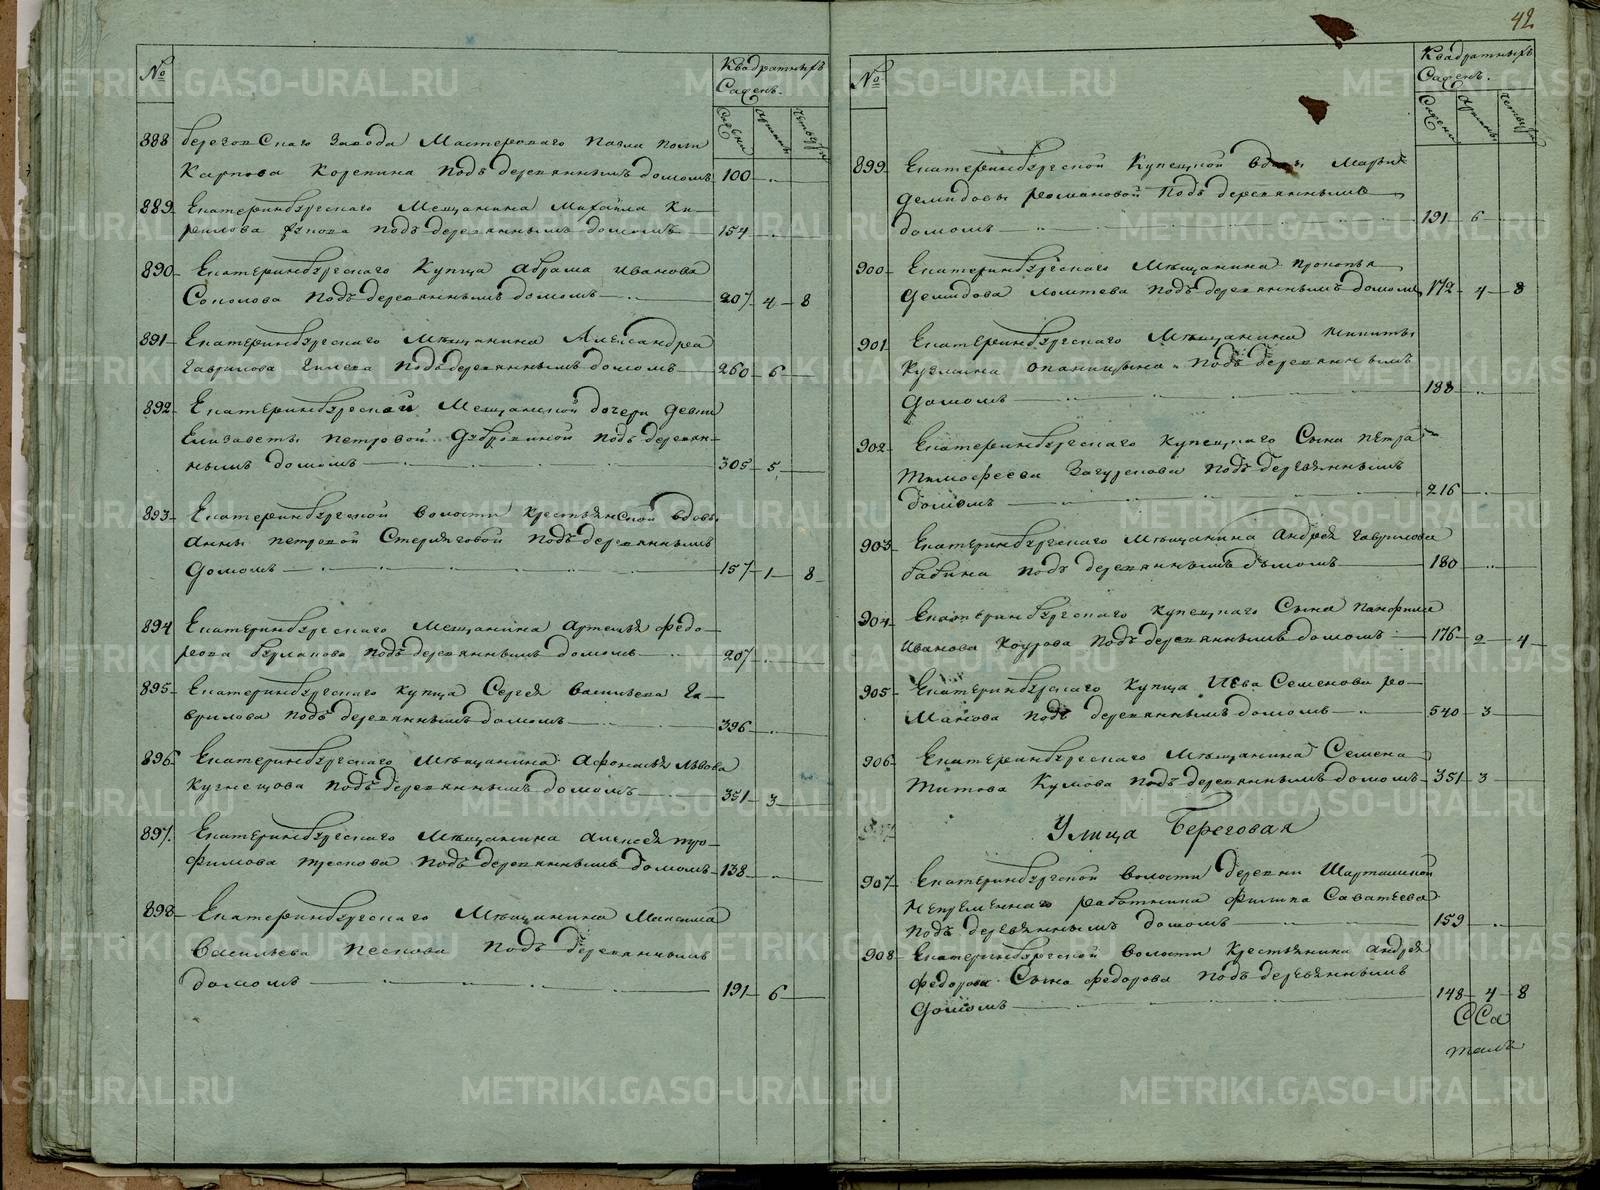 №
Квадратныхъ
Саженъ.
Сажени
Аршины
Четверти
888 Березовскаго Завода Мастероваго Павла Поли
Карпова Корепина подъ деревяннымъ домомъ 100
889 Екатеринбургскаго Мещанина Михайла Ки-
рилова подъ деревяннымъ домомъ 154
890 Екатеринбургскаго Купца Абрама Иванова
Соколова подъ деревяннымъ домомъ 207 4 8
891 Екатеринбургскаго Мѣщанина Александра
Гаврилова Гилева подъ деревяннымъ домомъ 260 6
892 Екатеринбургской Мещанской дочери девки
Елизаветы Петровой подъ деревян-
нымъ домомъ 305 5
893 Екатеринбургской волости крестьянской вдовы
Анны Петровой Стерляговой подъ деревяннымъ
домомъ 157 1 8
894 Екатеринбургскаго Мещанина Артемья Федо-
рова Бурлакова подъ деревяннымъ домомъ 207
895 Екатеринбургскаго купца Сергея Васильева Га-
врилова подъ деревяннымъ домомъ 396
896 Екатеринбургскаго Мѣщанина Афонасья Львова
Кузнецова подъ деревяннымъ домомъ 351 3
897 Екатеринбургскаго Мѣщанина Алексея Тро-
фимова подъ деревяннымъ домомъ 138
898 Екатеринбургскаго Мѣщанина Максима
Васильева Пескова подъ деревяннымъ
домомъ 191 6
42
№
Квадратныхъ
Саженъ.
Сажени
Аршины
Четверти
899 Екатеринбургской Купецкой вдовы Марьи
Демидовы Романовой подъ деревяннымъ
домомъ 191 6
900 Екатеринбургскаго Мѣщанина Прокопья
Демидова подъ деревяннымъ домомъ 172 4 8
901 Екатеринбургскаго Мѣщанина Никиты
Кузмина подъ деревяннымъ
домомъ 188
902 Екатеринбургскаго купецкаго Сына Петра
Тимофеева подъ деревяннымъ
домомъ 216
903 Екатеринбургскаго Мѣщанина Андрея Гаврилова
Бабина подъ деревяннымъ домомъ 180
904 Екатеринбургскаго купецкаго Сына Панфила
Иванова подъ деревяннымъ домомъ 176 2 4
905 Екатеринбургскаго купца Иева Семенова Ро-
манова подъ деревяннымъ домомъ 540 3
906 Екатеринбургскаго Мѣщанина Семена
Титова Кумова подъ деревяннымъ домомъ 351 3
Улица Береговая
907 Екатеринбургской волости деревни Шарташской
Непременнаго работника Филипа Саватеева
подъ деревяннымъ домомъ 159
908 Екатеринбургской волости крестьянина Андрея
Федорова Сына Федорова подъ деревяннымъ
домомъ 148 4 8
METRIKI.GASO-URAL.RU